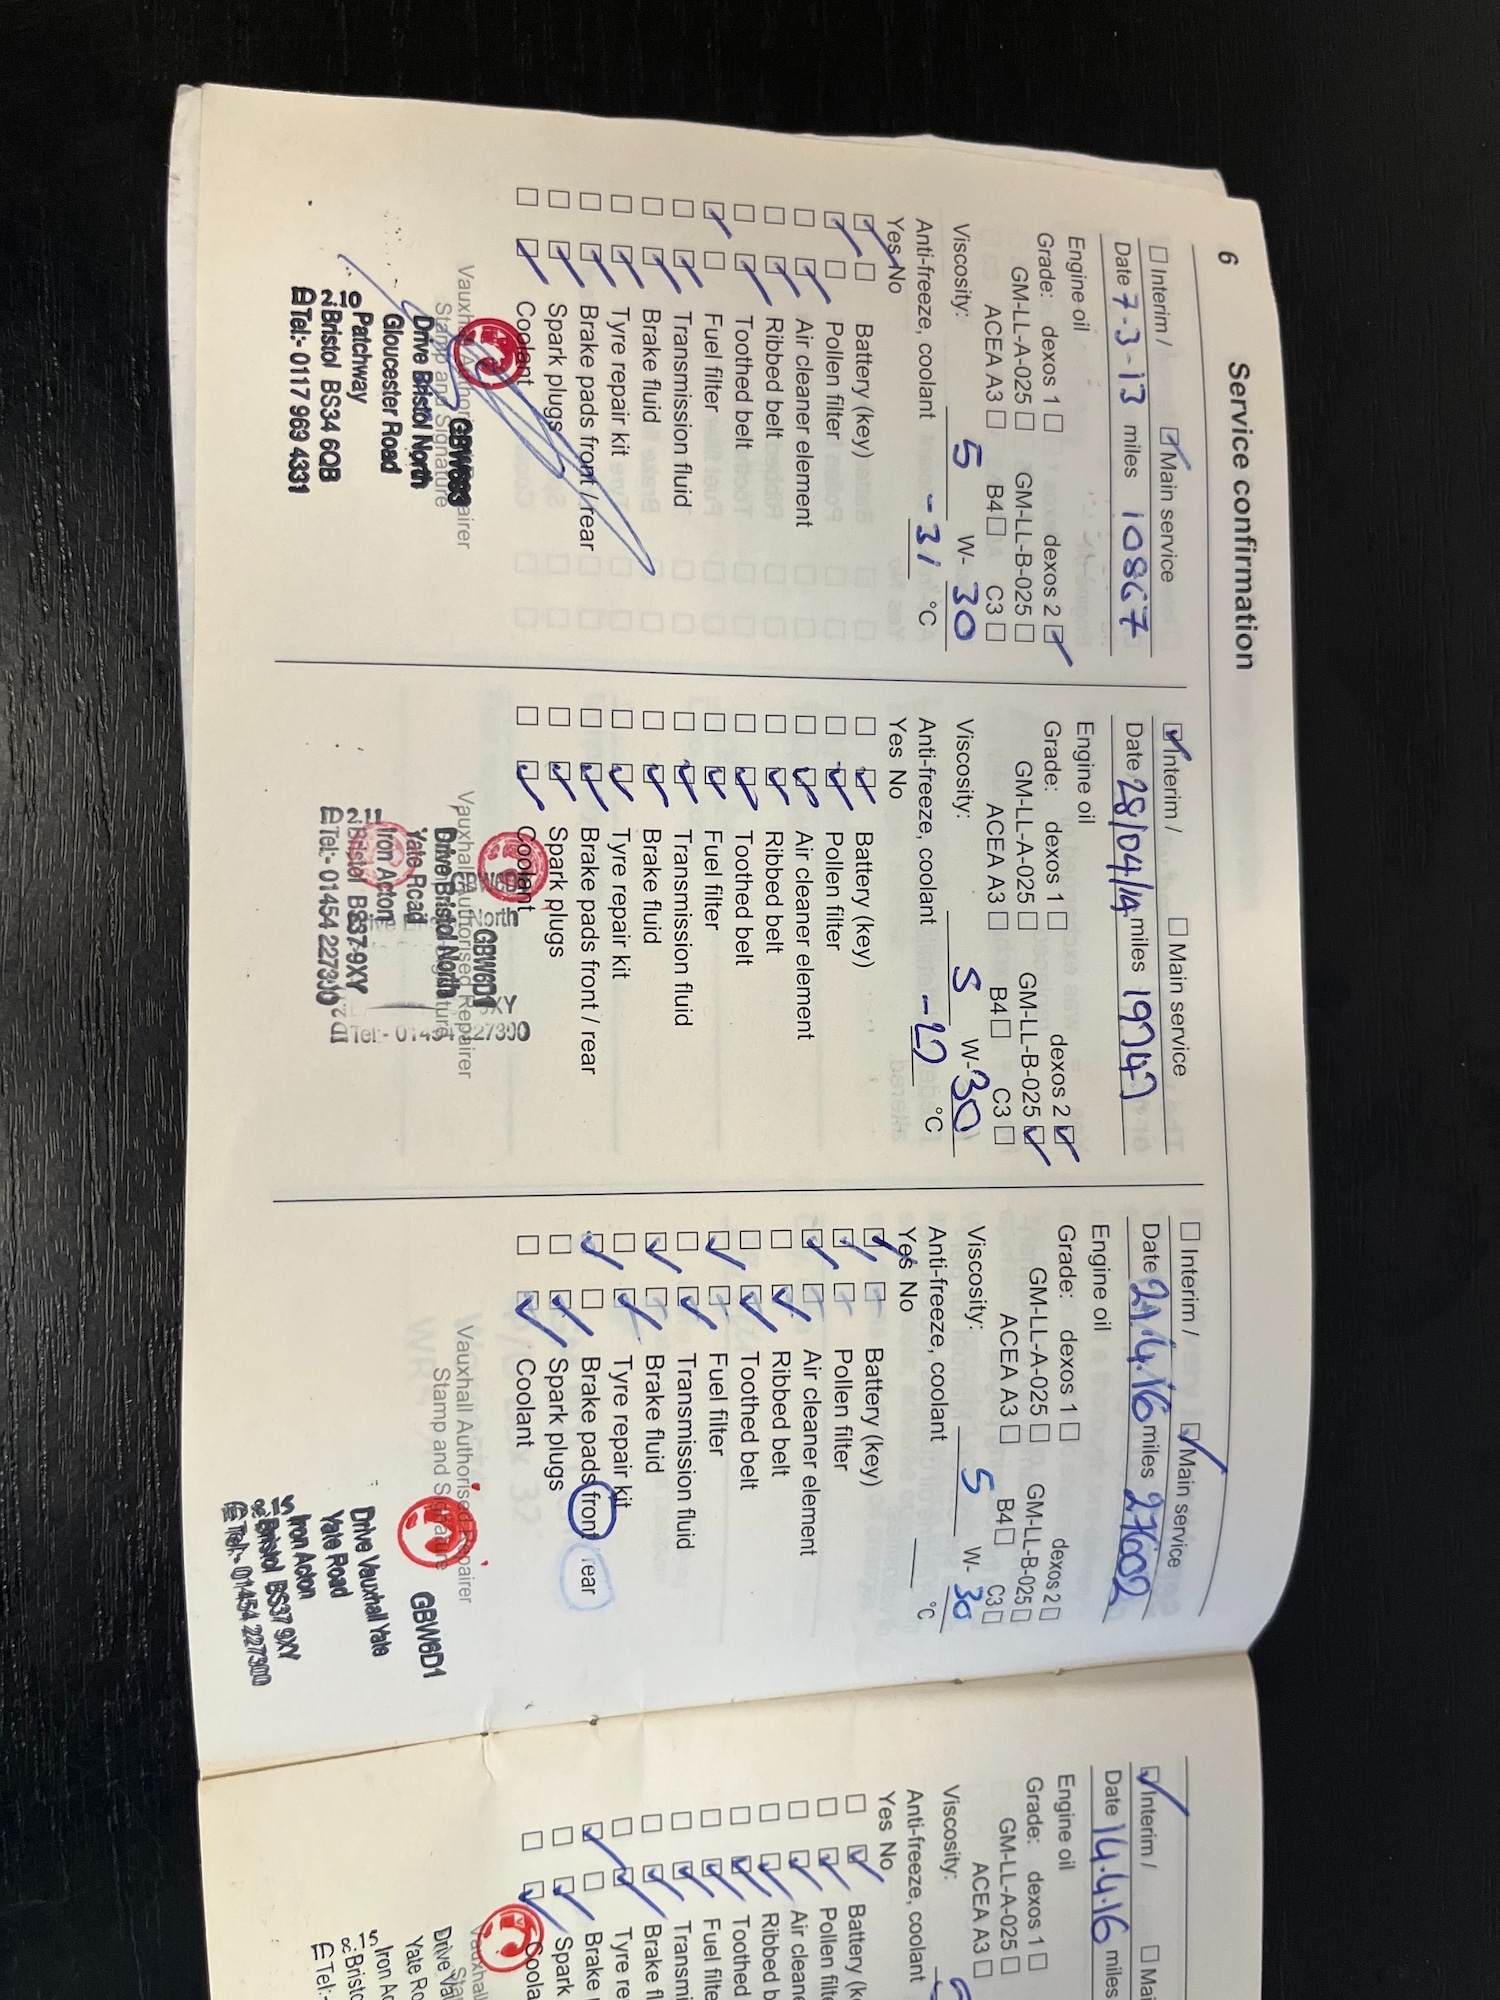 6
Service confirmation
Interim / Main service
Date 7-3-13 miles 10867
Engine oil
Grade: dexos 1 dexos 2
GM-LL-A-025 GM-LL-B-025
ACEA A3 B4 C3
Viscosity: 5 W- 30
Anti-freeze, coolant -31 °C
Yes No
Battery (key)
Pollen filter
Air cleaner element
Ribbed belt
Toothed belt
Fuel filter
Transmission fluid
Brake fluid
Tyre repair kit
Brake pads front / rear
Spark plugs
Coolant
Drive Bristol North
Gloucester Road
Patchway
Bristol BS34 6QB
Tel:- 0117 969 4331
Interim / Main service
Date 28/04/14 miles
Engine oil
Grade: dexos 1 dexos 2
GM-LL-A-025 GM-LL-B-025
ACEA A3 B4 C3
Viscosity: 5 W- 30
Anti-freeze, coolant °C
Yes No
Battery (key)
Pollen filter
Air cleaner element
Ribbed belt
Toothed belt
Fuel filter
Transmission fluid
Brake fluid
Tyre repair kit
Brake pads front / rear
Spark plugs
Coolant
GBW6D1
Vauxhall Authorised Repairer
Drive Bristol North
Yate Road
Iron Acton
Bristol BS37 9XY
Tel:- 01454 227300
Interim / Main service
Date miles 27602
Engine oil
Grade: dexos 1 dexos 2
GM-LL-A-025 GM-LL-B-025
ACEA A3 B4 C3
Viscosity: 5 W- 30
Anti-freeze, coolant °C
Yes No
Battery (key)
Pollen filter
Air cleaner element
Ribbed belt
Toothed belt
Fuel filter
Transmission fluid
Brake fluid
Tyre repair kit
Brake pads front / rear
Spark plugs
Coolant
Vauxhall Authorised Repairer
Stamp and Signature
GBW6D1
Drive Vauxhall Yate
Yate Road
Iron Acton
Bristol BS37 9XY
Tel:- 01454 227300
Interim / Mai
Date 14.4.16 miles
Engine oil
Grade: dexos 1
GM-LL-A-025
ACEA A3
Viscosity:
Anti-freeze, coolant
Yes No
Battery (k
Pollen filt
Air cleane
Ribbed b
Toothed
Fuel filte
Transmi
Brake fl
Tyre re
Brake
Spark
Coola
Vauxhall
Drive Va
Yate Ro
Iron Ac
Bristo
Tel:-